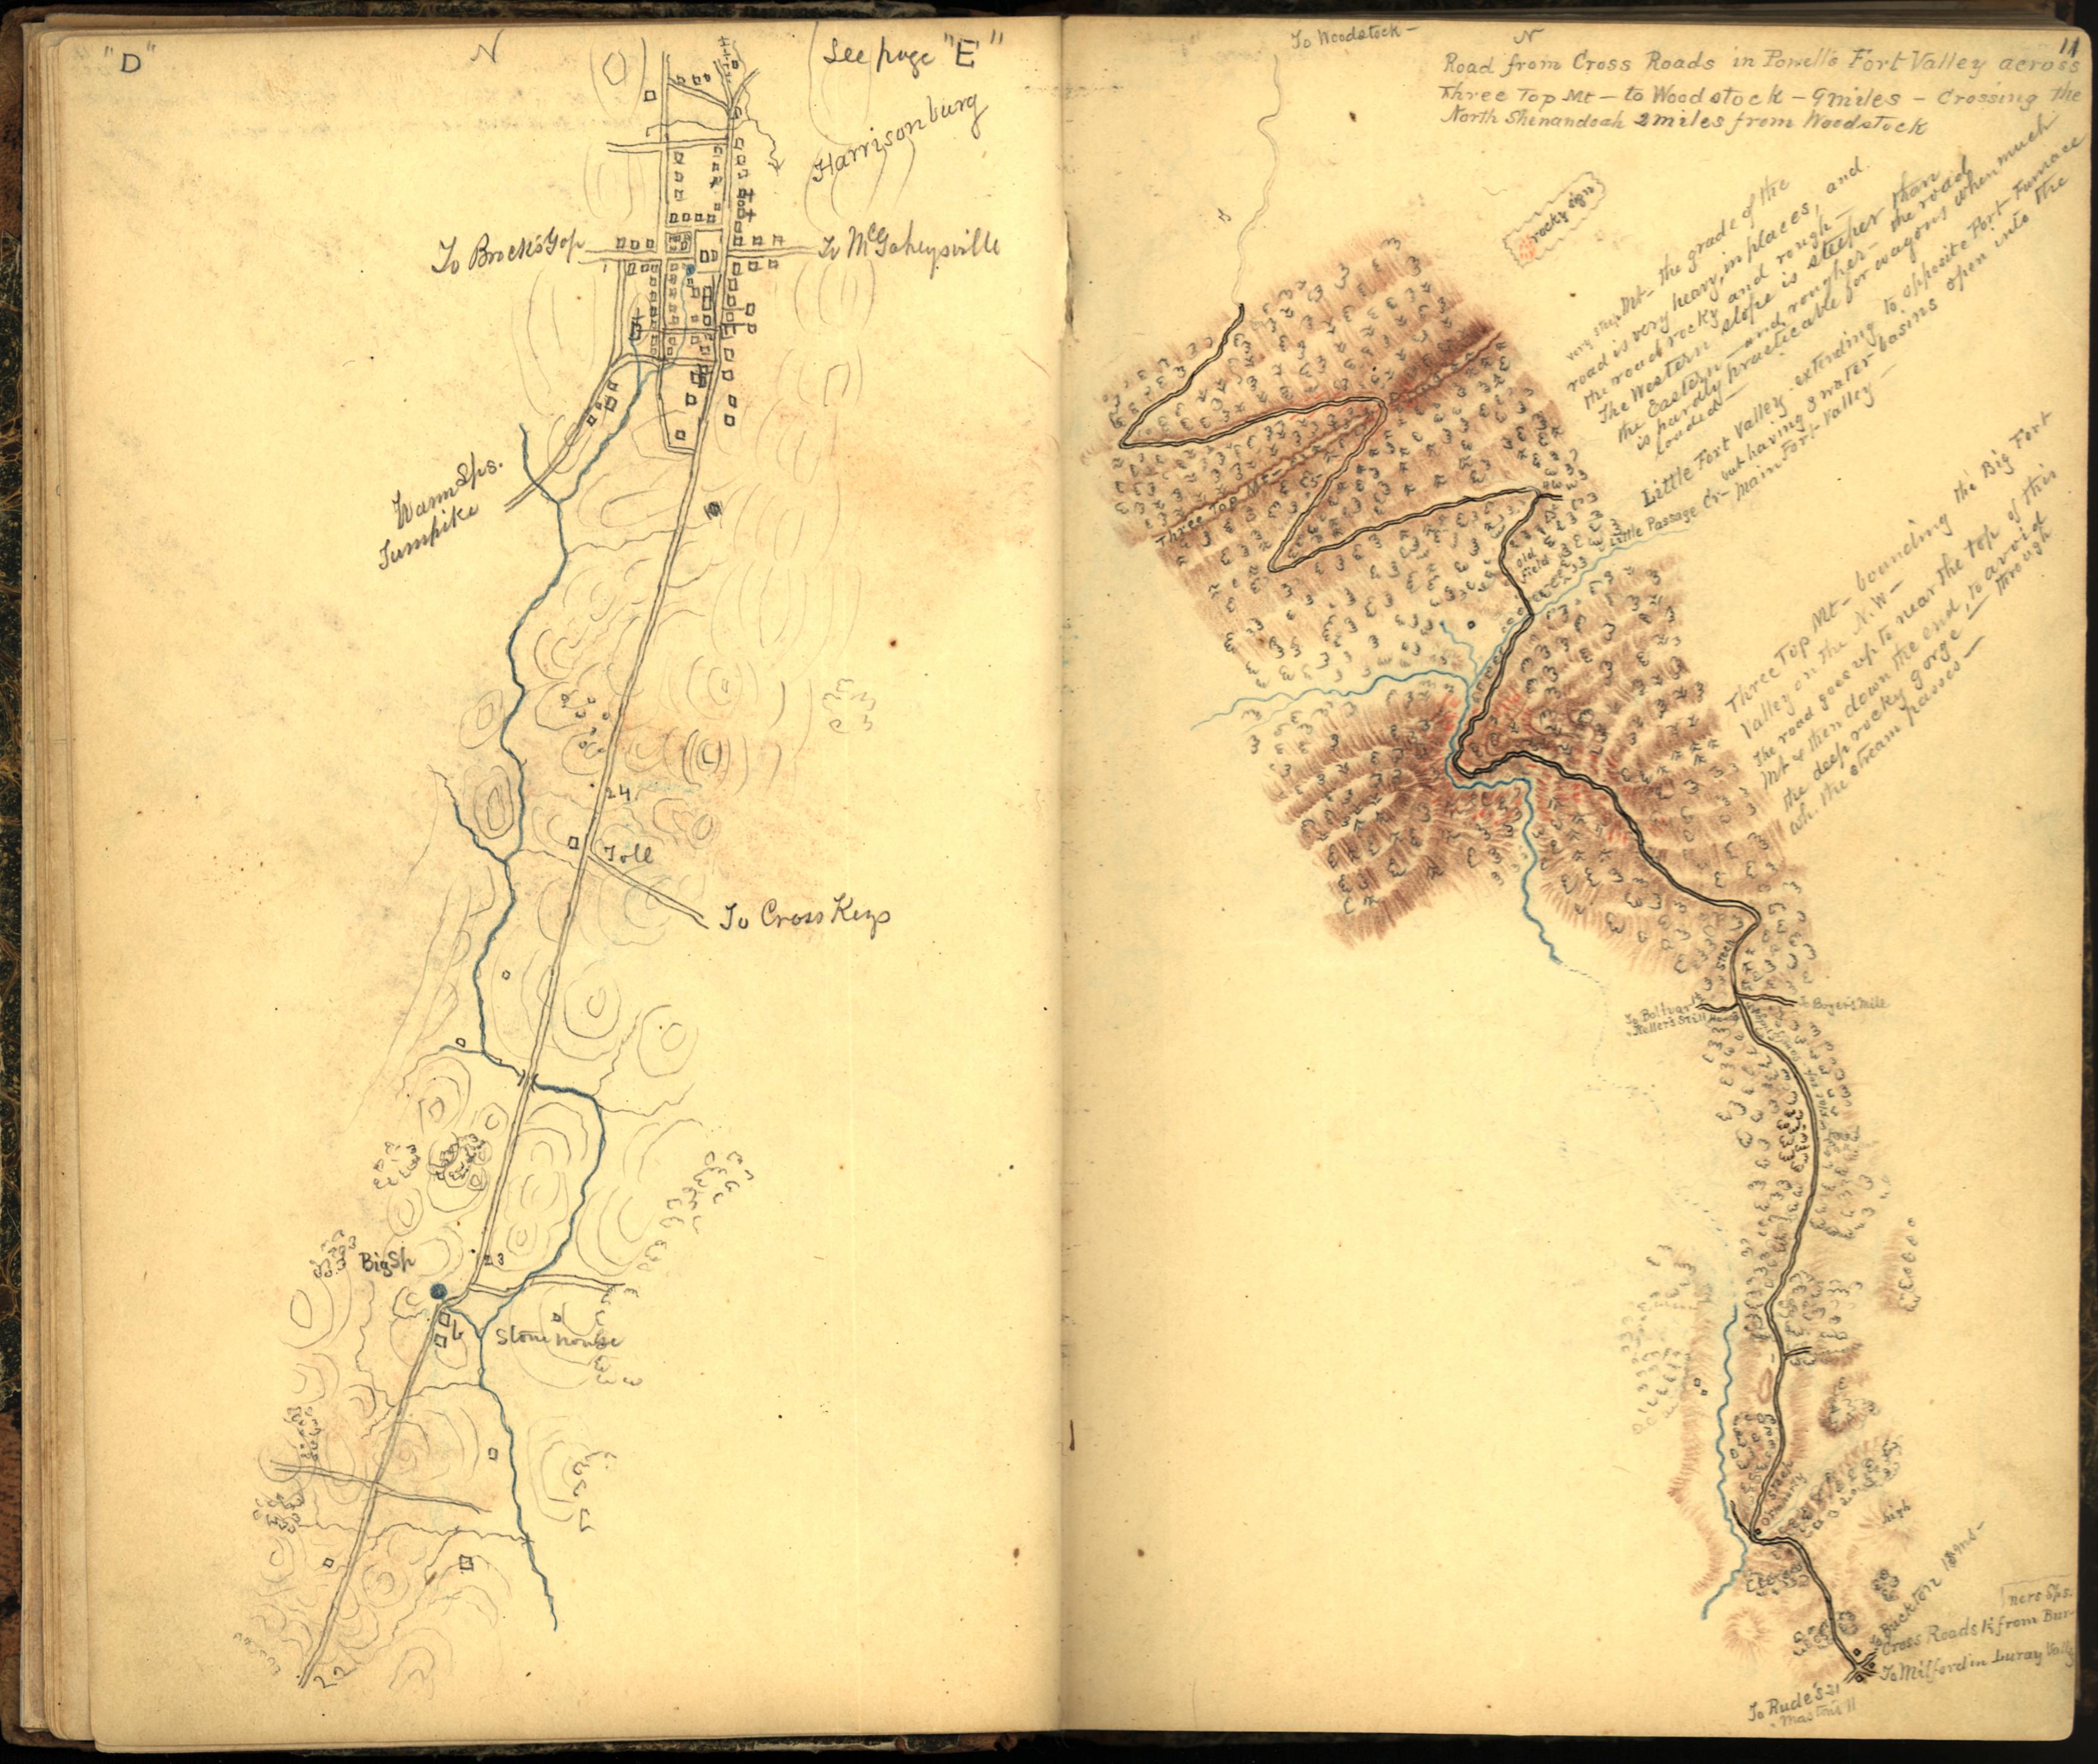 "D"
N
See page "E"
Harrisonburg
To Brock's Gap
To McGaheysville
Warm Sps.
Turnpike
24
Toll
To Cross Keys
Big Sp
23
Stone house
22
To Woodstock —
N
11
Road from Cross Roads in Powell's Fort Valley across
Three Top Mt — to Woodstock — 9 miles — Crossing the
North Shenandoah 2 miles from Woodstock
rocky sign
very steep Mt — the grade of the
road is very heavy, in places, and
the road rocky and rough —
The Western slope is steeper than
the Eastern — and rougher — the road
is hardly practicable for wagons when much
loaded —
Little Fort Valley extending to opposite Fort Furnace
but having 3 water basins open into the
Main Fort Valley —
Little Passage Cr —
Three Top Mt —
Old
Field
Three Top Mt — bounding the Big Fort
Valley on the N.W —
The road goes up to near the top of this
Mt & then down the end, to avoid
the deep rocky gorge — through
wh. the stream passes —
Steep
To Boyer's Mill
Keller's Still House
high
To Buckton 18 ms —
ners Sps.
Cross Roads 1½ from Bur-
To Milford in Luray Vally
To Rude's 21
" Maston's 11